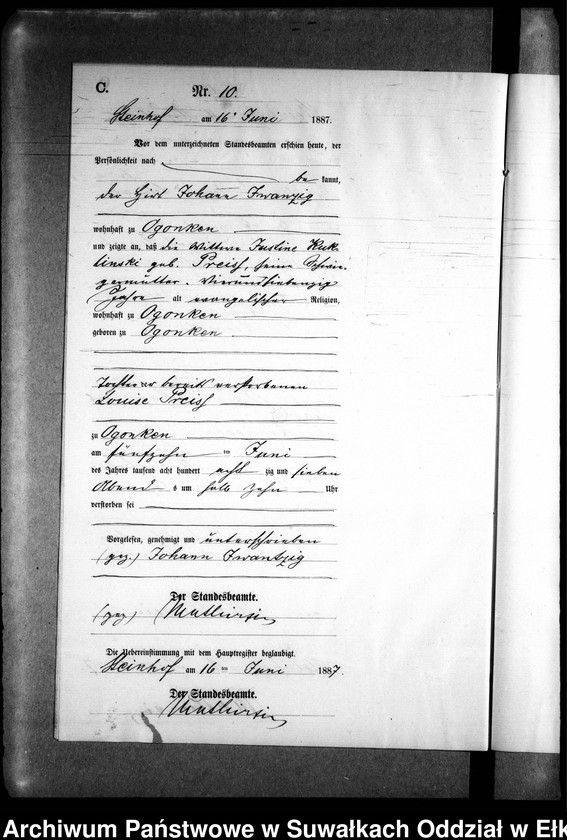 C.
Nr. 10.
Steinhof am 16ᵗ Juni 1887.
Vor dem unterzeichneten Standesbeamten erschien heute, der
Persönlichkeit nach
be kannt,
der Hirt Johann Zwanzig
wohnhaft zu Ogonken
und zeigte an, daß die Wittwe Justine Kuk-
linski geb. Preiß, seine Schwie-
germutter, vierundsiebenzig
Jahre alt evangelischer Religion,
wohnhaft zu Ogonken
geboren zu Ogonken
Tochter der bereits verstorbenen
Louise Preiß
zu Ogonken
am fünfzehn ten Juni
des Jahres tausend acht hundert acht zig und sieben
Abend s um halb zehn Uhr
verstorben sei
Vorgelesen, genehmigt und unterschrieben
(gez.) Johann Zwantzig
Der Standesbeamte.
(gez)
Die Uebereinstimmung mit dem Hauptregister beglaubigt.
Steinhof am 16 ten Juni 1887
Der Standesbeamte.
Archiwum Państwowe w Suwałkach Oddział w Ełk